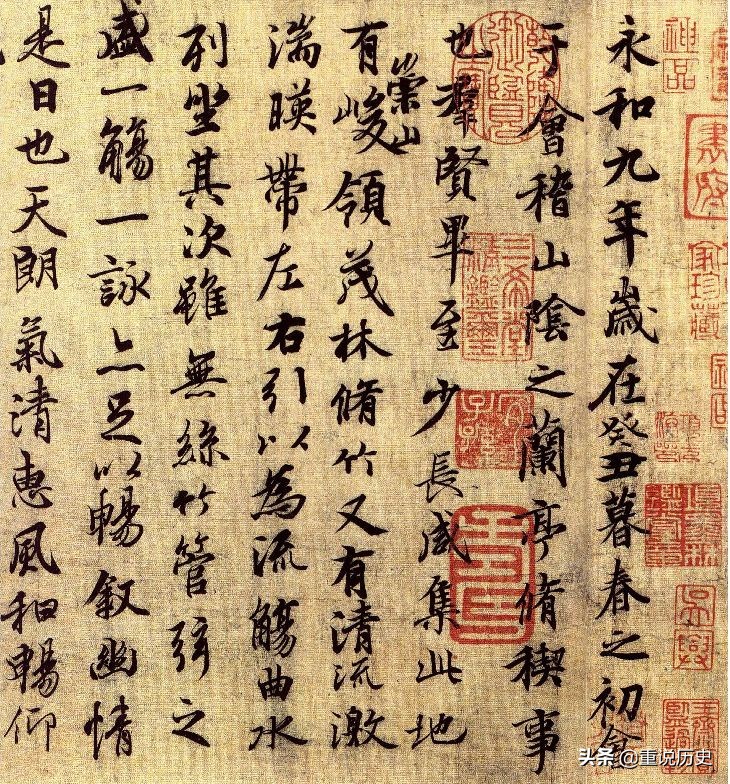 神品
永和九年歲在癸丑暮春之初會
于會稽山陰之蘭亭脩稧事
也羣賢畢至少長咸集此地
有崇山峻領茂林脩竹又有清流激
湍暎帶左右引以為流觴曲水
列坐其次雖無絲竹管弦之
盛一觴一詠亦足以暢敘幽情
是日也天朗氣清惠風和暢仰
三希堂精鑑璽
宜子孫
头条 @重说历史